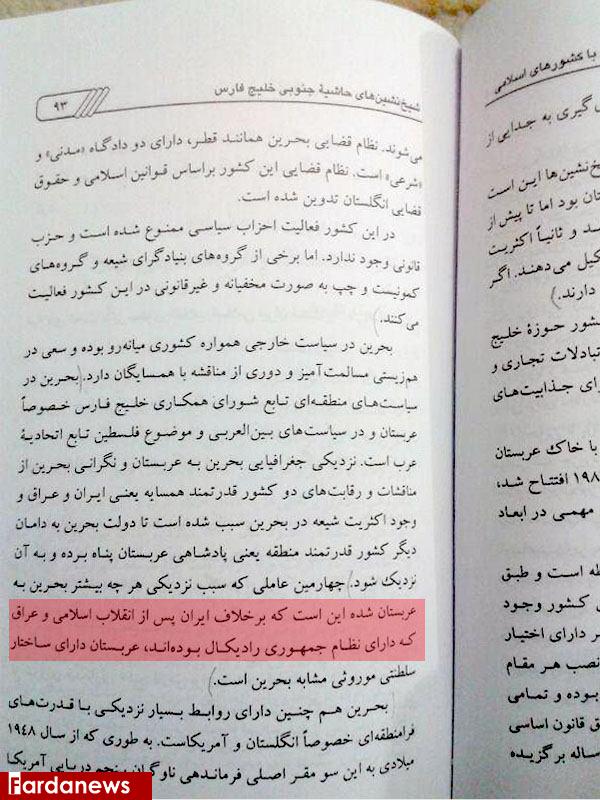 شیخ‌نشین‌های حاشیهٔ جنوبی خلیج فارس
۹۳
می‌شوند. نظام قضایی بحرین هماننـد قطـر، دارای دو دادگاه «مـدنی» و
«شرعی» است. نظام قضایی این کشور براساس قوانین اسلامی و حقوق
قضایی انگلستان تدوین شده است.
در این کشور فعالیت احزاب سیاسی ممنوع شده است و حزب
قانونی وجود ندارد. اما برخی از گروه‌های بنیادگرای شیعه و گروه‌های
کمونیست و چپ به صورت مخفیانه و غیرقانونی در این کشور فعالیت
می‌کنند.)
بحرین در سیاست خارجی همواره کشوری میانه‌رو بوده و سعی در
هم‌زیستی مسالمت‌آمیز و دوری از مناقشه با همسایگان دارد.)بحـرین در
سیاست‌های منطقه‌ای تـابع شورای همکاری خلـیج فـارس خصوصاً
عربستان و در سیاست‌های بین‌العربی و موضوع فلسطین تـابع اتحادیـهٔ
عرب است. نزدیکی جغرافیایی بحرین بـه عربستان و نگرانی بحرین از
مناقشات و رقابت‌های دو کشور قدرتمند همسایه یعنی ایـران و عـراق و
وجود اکثریت شیعه در بحرین سبب شده است تا دولت بحرین به دامان
دیگر کشور قدرتمند منطقه یعنی پادشاهی عربستان پناه بـرده و بـه آن
نزدیک شود.)چهارمین عاملی که سبب نزدیکی هر چه بیشتر بحرین بـه
عربستان شده این است که برخلاف ایران پس از انقلاب اسلامی و عراق
کـه دارای نظـام جمهـوری رادیکـال بـوده‌انـد، عربستان دارای سـاختار
سلطنتی موروثی مشابه بحرین است.)
)بحـرین هـم چنـین دارای روابـط بسیار نزدیکـی بـا قـدرت‌هـای
فرامنطقه‌ای خصوصاً انگلستان و آمریکاست. به طوری که از سـال ۱۹۴۸
میلادی به این سو مقـر اصـلی فرمانـدهی نـاوگان پنجم دریـایی آمریکـا
با کشورهای اسلامی
گیری به جدایی از
خ‌نشین‌ها ایـن است
تان بود اما تا پیش از
د و ثانیـاً اکثریـت
کیل می‌دهند. اگـر
دارند.)
شور حـوزهٔ خلـیج
تبادلات تجاری و
رای جـذابیت‌های
با خاک عربستان
افتتاح شد،
مهمی در ابعـاد
ظه است و طبـق
ی کشـور وجـود
ر دارای اختیـار
نصب هـر مقـام
بـوده و تمـامی
ق قانون اساسی
ساله برگزیـده
Fardanews